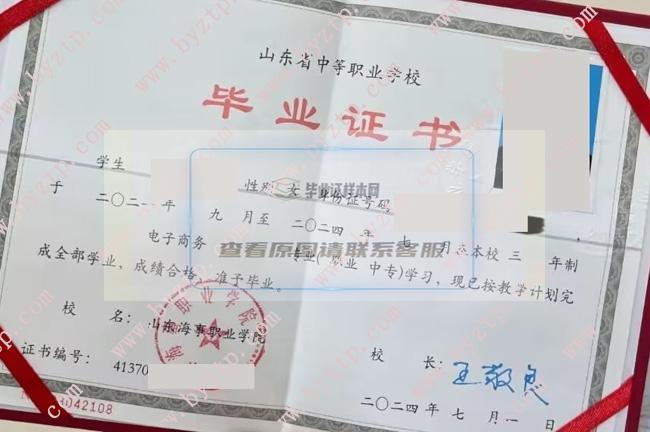 山东省中等职业学校
毕业证书
学生
性别 女 身份证号码
于 二〇二一年 九 月至 二〇二四 年 七 月在本校 三 年制
电子商务 专业( 职业 中专)学习,现已按教学计划完
成全部学业,成绩合格,准予毕业。
毕业证样本网
查看原图请联系客服
校 名: 山东海事职业学院
校 长: 王敬良
证书编号: 41370
二〇二四 年 七 月 一 日
3042108
www.byztp.com